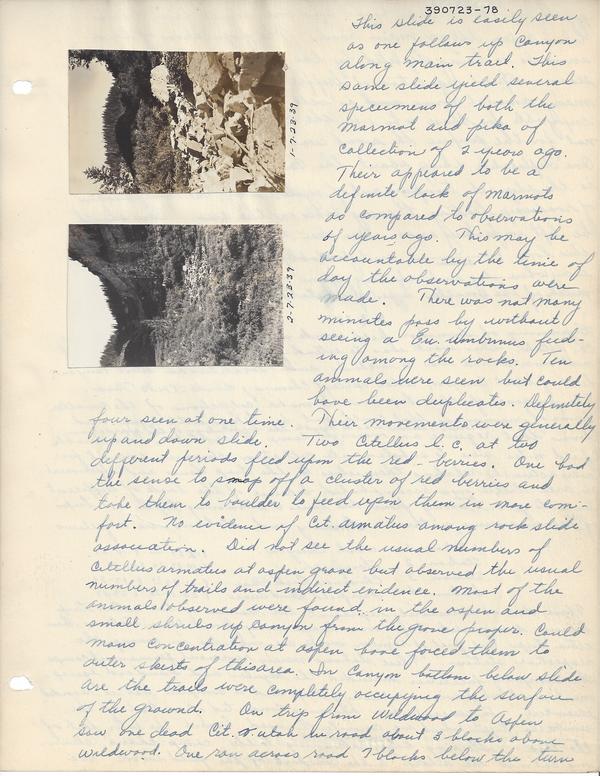 390723-78
This slide is easily seen
as one follows up Canyon
along main trail. This
same slide yield several
specimens of both the
Marmot and pika of
collection of 2 years ago.
Their appeared to be a
definite lack of marmots
as compared to observations
of years ago. This may be
accountable by the time of
day the observations were
made. There was not many
minutes pass by without
seeing a Eu. umbrinus feed-
ing among the rocks. Ten
animals were seen but could
have been duplicates. Definitely
four seen at one time. Their movements were generally
up and down slide. Two Citellus l. c. at two
different periods feed upon the red-berries. One had
the sense to snap off a cluster of red berries and
take them to boulder to feed upon them in more com-
fort. No evidence of Cit. armatus among rock slide
association. Did not see the usual numbers of
Citellus armatus at aspen grove but observed the usual
numbers of trails and indirect evidence. Most of the
animals observed were found in the aspen and
small shrubs up Canyon from the grove proper. Could
mans concentration at aspen have forced them to
outer skirts of this area. In Canyon bottom below slide
are the trails were completely occupying the surface
of the ground. On trip from Wildwood to Aspen
saw one dead Cit. v. utah in road about 3 blocks above
Wildwood. One ran across road 7 blocks below the turn
1-7-23-39
2-7-23-39